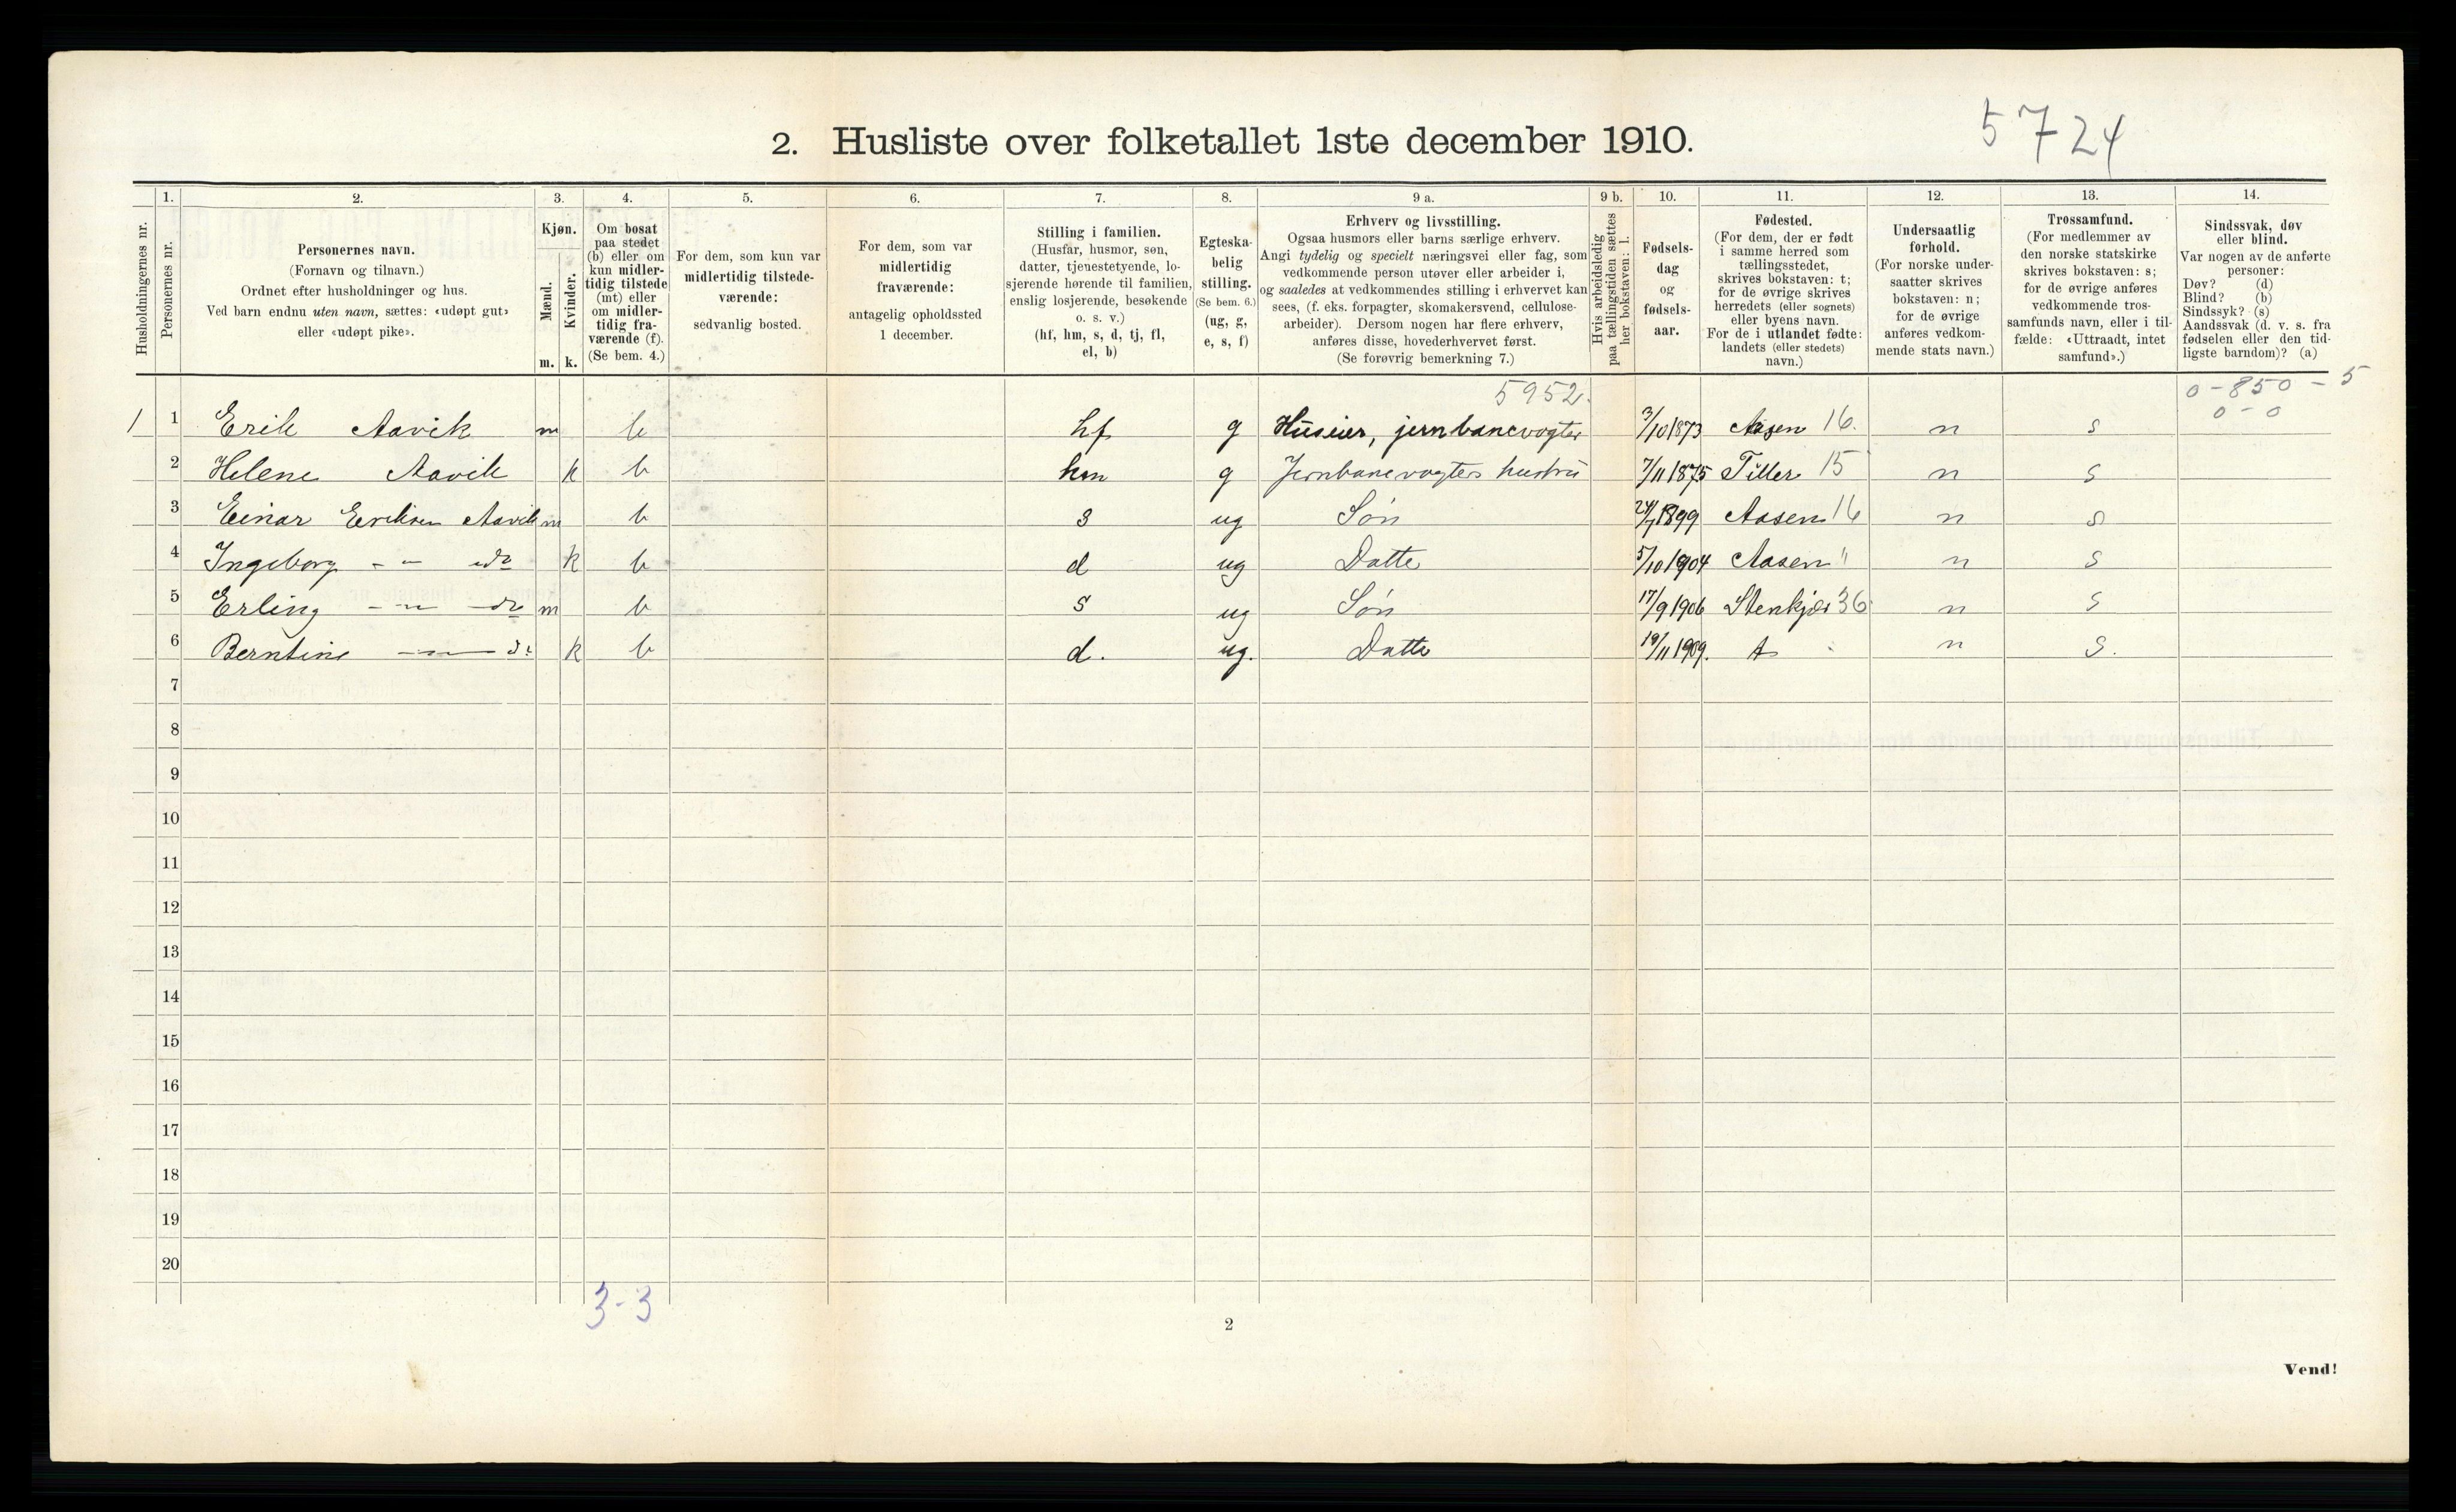 5724
2. Husliste over folketallet 1ste december 1910.
Husholdningernes nr.
1.
Personernes nr.
2.
Personernes navn.
(Fornavn og tilnavn.)
Ordnet efter husholdninger og hus.
Ved barn endnu uten navn, sættes: «udøpt gut»
eller «udøpt pike».
3.
Kjøn.
Mænd.
m.
Kvinder.
k.
4.
Om bosat
paa stedet
(b) eller om
kun midler-
tidig tilstede
(mt) eller
om midler-
tidig fra-
værende (f).
(Se bem. 4.)
5.
For dem, som kun var
midlertidig tilstede-
værende:
sedvanlig bosted.
6.
For dem, som var
midlertidig
fraværende:
antagelig opholdssted
1 december.
7.
Stilling i familien.
(Husfar, husmor, søn,
datter, tjenestetyende, lo-
sjerende hørende til familien,
enslig losjerende, besøkende
o. s. v.)
(hf, hm, s, d, tj, fl,
el, b)
8.
Egteska-
belig
stilling.
(Se bem. 6.)
(ug, g,
e, s, f)
9 a.
Erhverv og livsstilling.
Ogsaa husmors eller barns særlige erhverv.
Angi tydelig og specielt næringsvei eller fag, som
vedkommende person utøver eller arbeider i,
og saaledes at vedkommendes stilling i erhvervet kan
sees, (f. eks. forpagter, skomakersvend, cellulose-
arbeider). Dersom nogen har flere erhverv,
anføres disse, hovederhvervet først.
(Se forøvrig bemerkning 7.)
9 b.
Hvis arbeidsledig
paa tællingstiden sættes
her bokstaven: l.
10.
Fødsels-
dag
og
fødsels-
aar.
11.
Fødested.
(For dem, der er født
i samme herred som
tællingsstedet,
skrives bokstaven: t;
for de øvrige skrives
herredets (eller sognets)
eller byens navn.
For de i utlandet fødte:
landets (eller stedets)
navn.)
12.
Undersaatlig
forhold.
(For norske under-
saatter skrives
bokstaven: n;
for de øvrige
anføres vedkom-
mende stats navn.)
13.
Trossamfund.
(For medlemmer av
den norske statskirke
skrives bokstaven: s;
for de øvrige anføres
vedkommende tros-
samfunds navn, eller i til-
fælde: «Uttraadt, intet
samfund».)
14.
Sindssvak, døv
eller blind.
Var nogen av de anførte
personer:
Døv? (d)
Blind? (b)
Sindssyk? (s)
Aandssvak (d. v. s. fra
fødselen eller den tid-
ligste barndom)? (a)
5952. 0-850-5
0-0
1 1 Erik Aavik m b hf g Huseier, jernbanevogter 3/10 1873 Aasen 16. n s
2 Helene Aavik k b hm g Jernbanevogters hustru 7/11 1875 Tiller 15 n s
3 Einar Eriksen Aavik m b s ug Søn 24/7 1899 Aasen 16 n s
4 Ingeborg - " - do k b d ug Datte 5/10 1904 Aasen " n s
5 Erling - " - do m b s ug Søn 17/9 1906 Stenkjær 36 n s
6 Berntine - " - do k b d. ug. Datte 19/11 1909. t n s.
7
8
9
10
11
12
13
14
15
16
17
18
19
20
3-3
2
Vend!